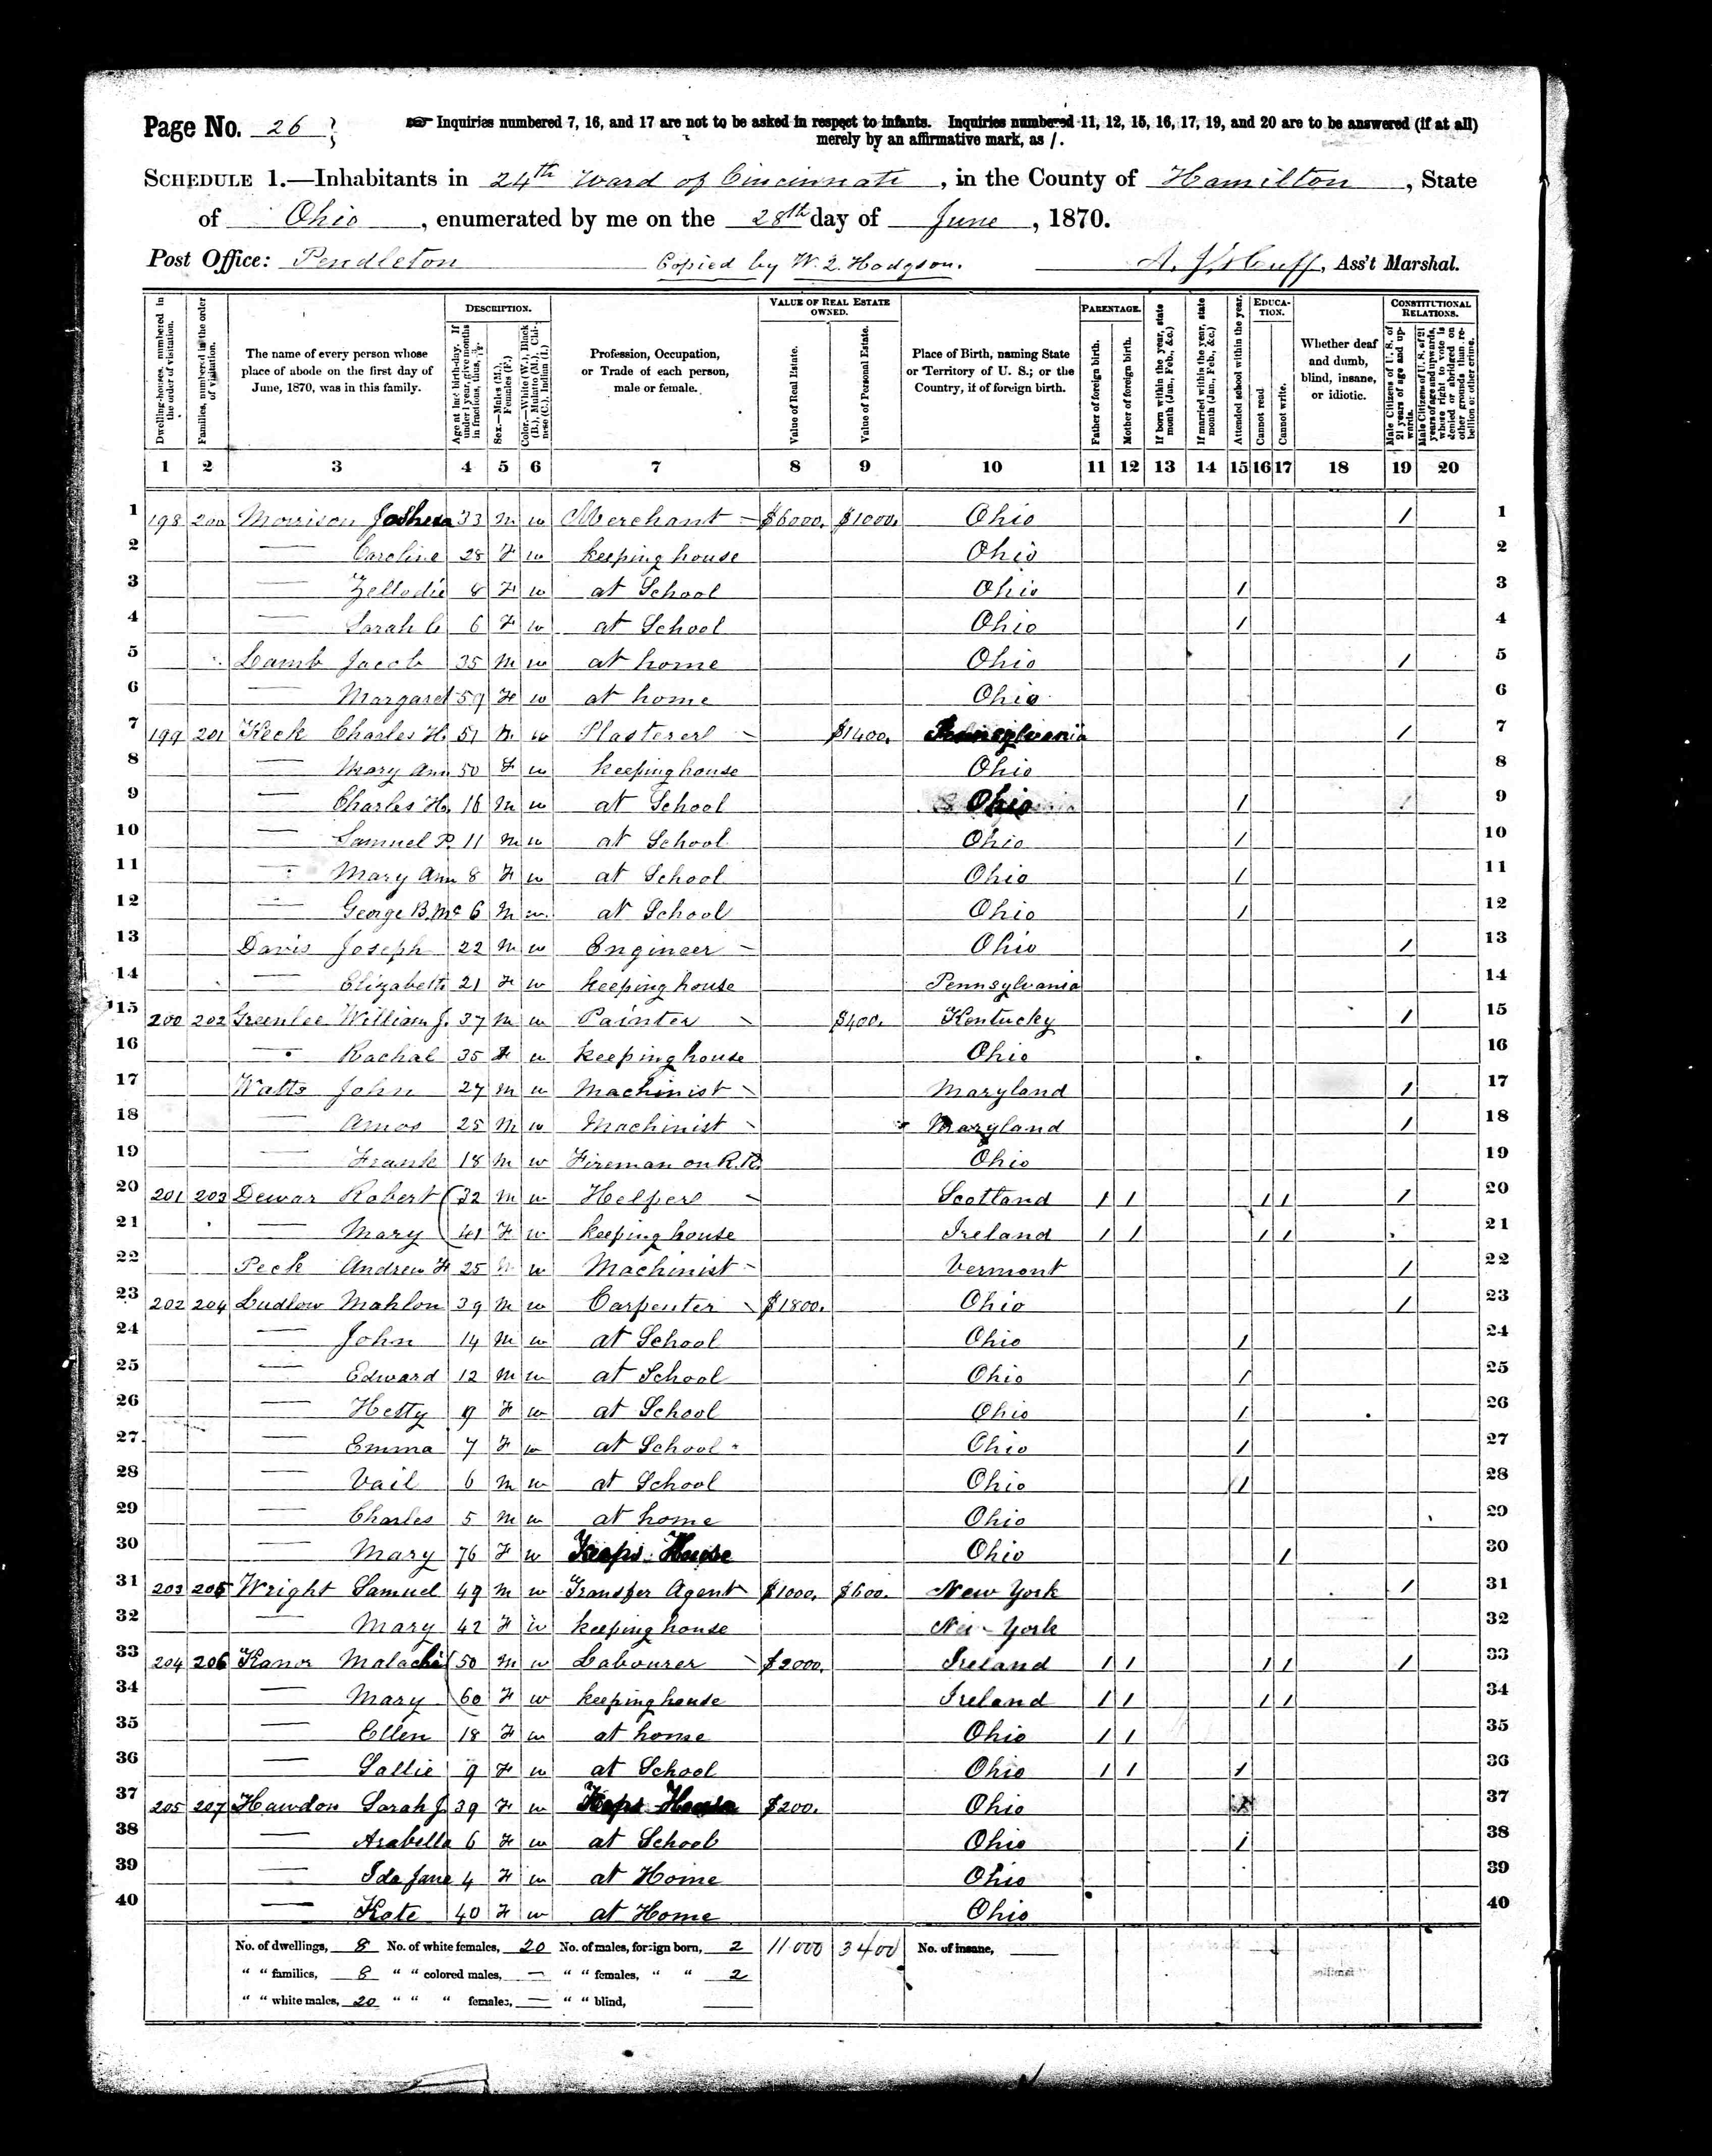 Page No. 26
Inquiries numbered 7, 16, and 17 are not to be asked in respect to infants. Inquiries numbered 11, 12, 15, 16, 17, 19, and 20 are to be answered (if at all)
merely by an affirmative mark, as /.
SCHEDULE 1.—Inhabitants in 24th Ward of Cincinnati, in the County of Hamilton, State
of Ohio, enumerated by me on the 28th day of June, 1870.
Post Office: Pendleton Copied by W. L. Hodgson. Ass't Marshal.
Dwelling-houses, numbered in the order of visitation.
Families, numbered in the order of visitation.
The name of every person whose place of abode on the first day of June, 1870, was in this family.
DESCRIPTION.
Age at last birth-day. If under 1 year, give months in fractions, thus, 3/12.
Sex.—Males (M.), Females (F.)
Color.—White (W.), Black (B.), Mulatto (M.), Chinese (C.), Indian (I.)
Profession, Occupation, or Trade of each person, male or female.
VALUE OF REAL ESTATE OWNED.
Value of Real Estate.
Value of Personal Estate.
Place of Birth, naming State or Territory of U. S.; or the Country, if of foreign birth.
PARENTAGE.
Father of foreign birth.
Mother of foreign birth.
If born within the year, state month (Jan., Feb., &c.)
If married within the year, state month (Jan., Feb., &c.)
Attended school within the year.
EDUCATION.
Cannot read.
Cannot write.
Whether deaf and dumb, blind, insane, or idiotic.
CONSTITUTIONAL RELATIONS.
Male Citizens of U. S. of 21 years of age and upwards.
Male Citizens of U. S. of 21 years of age and upwards, whose right to vote is denied or abridged on other grounds than rebellion or other crime.
1 2 3 4 5 6 7 8 9 10 11 12 13 14 15 16 17 18 19 20
1 198 200 Morrison Joshua 33 M w Merchant $6000. $1000. Ohio / 1
2 — Caroline 28 F w keeping house Ohio 2
3 — Zellodie 8 F w at School Ohio / 3
4 — Sarah C 6 F w at School Ohio / 4
5 Lamb Jacob 35 M w at home Ohio / 5
6 — Margaret 59 F w at home Ohio 6
7 199 201 Keck Charles H. 51 M w Plasterer $1400. Pennsylvania / 7
8 — Mary Ann 50 F w keeping house Ohio 8
9 — Charles H. 16 M w at School Ohio / 9
10 — Samuel P. 11 M w at School Ohio / 10
11 — Mary Ann 8 F w at School Ohio / 11
12 — George B. Mc 6 M w at School Ohio / 12
13 Davis Joseph 22 M w Engineer Ohio / 13
14 — Elizabeth 21 F w keeping house Pennsylvania 14
15 200 202 Greenlee William J. 37 M w Painter $400. Kentucky / 15
16 — Rachal 35 F w keeping house Ohio 16
17 Watts John 27 M w Machinist Maryland / 17
18 — Amos 25 M w Machinist Maryland / 18
19 — Frank 18 M w Fireman on R.R. Ohio 19
20 201 203 Dewar Robert 32 M w Helper Scotland / / / / / 20
21 — Mary 41 F w keeping house Ireland / / / / 21
22 Peck Andrew H 25 M w Machinist Vermont / 22
23 202 204 Ludlow Mahlon 39 M w Carpenter $1800. Ohio / 23
24 — John 14 M w at School Ohio / 24
25 — Edward 12 M w at School Ohio / 25
26 — Hetty 9 F w at School Ohio / 26
27 — Emma 7 F w at School Ohio / 27
28 — Vail 6 M w at School Ohio / 28
29 — Charles 5 M w at home Ohio 29
30 — Mary 76 F w Keeps House Ohio / 30
31 203 205 Wright Samuel 49 M w Transfer Agent $1000. $600. New York / 31
32 — Mary 42 F w keeping house New York 32
33 204 206 Kanor Malachi 50 M w Labourer $2000. Ireland / / / / / 33
34 — Mary 60 F w keeping house Ireland / / / / 34
35 — Ellen 18 F w at home Ohio / / 35
36 — Sallie 9 F w at School Ohio / / / 36
37 205 207 Hawdon Sarah J. 39 F w Keeps House $200. Ohio 37
38 — Arabella 6 F w at School Ohio / 38
39 — Ida Jane 4 F w at Home Ohio 39
40 — Kate 40 F w at Home Ohio 40
No. of dwellings, 8 No. of white females, 20 No. of males, foreign born, 2 11.000 3400 No. of insane,
" " families, 8 " " colored males, — " " females, " " 2
" " white males, 20 " " " females, — " " blind,